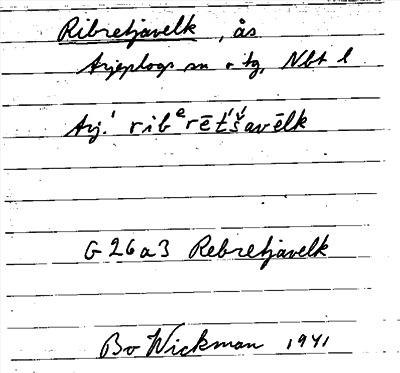 Ribretjavelk, ås
Arjeplogs sn o tg, Nbt l
Arj. ribᵉrēt́š́avēlk
G 26 a 3 Rebretjavelk
Bo Wickman 1941